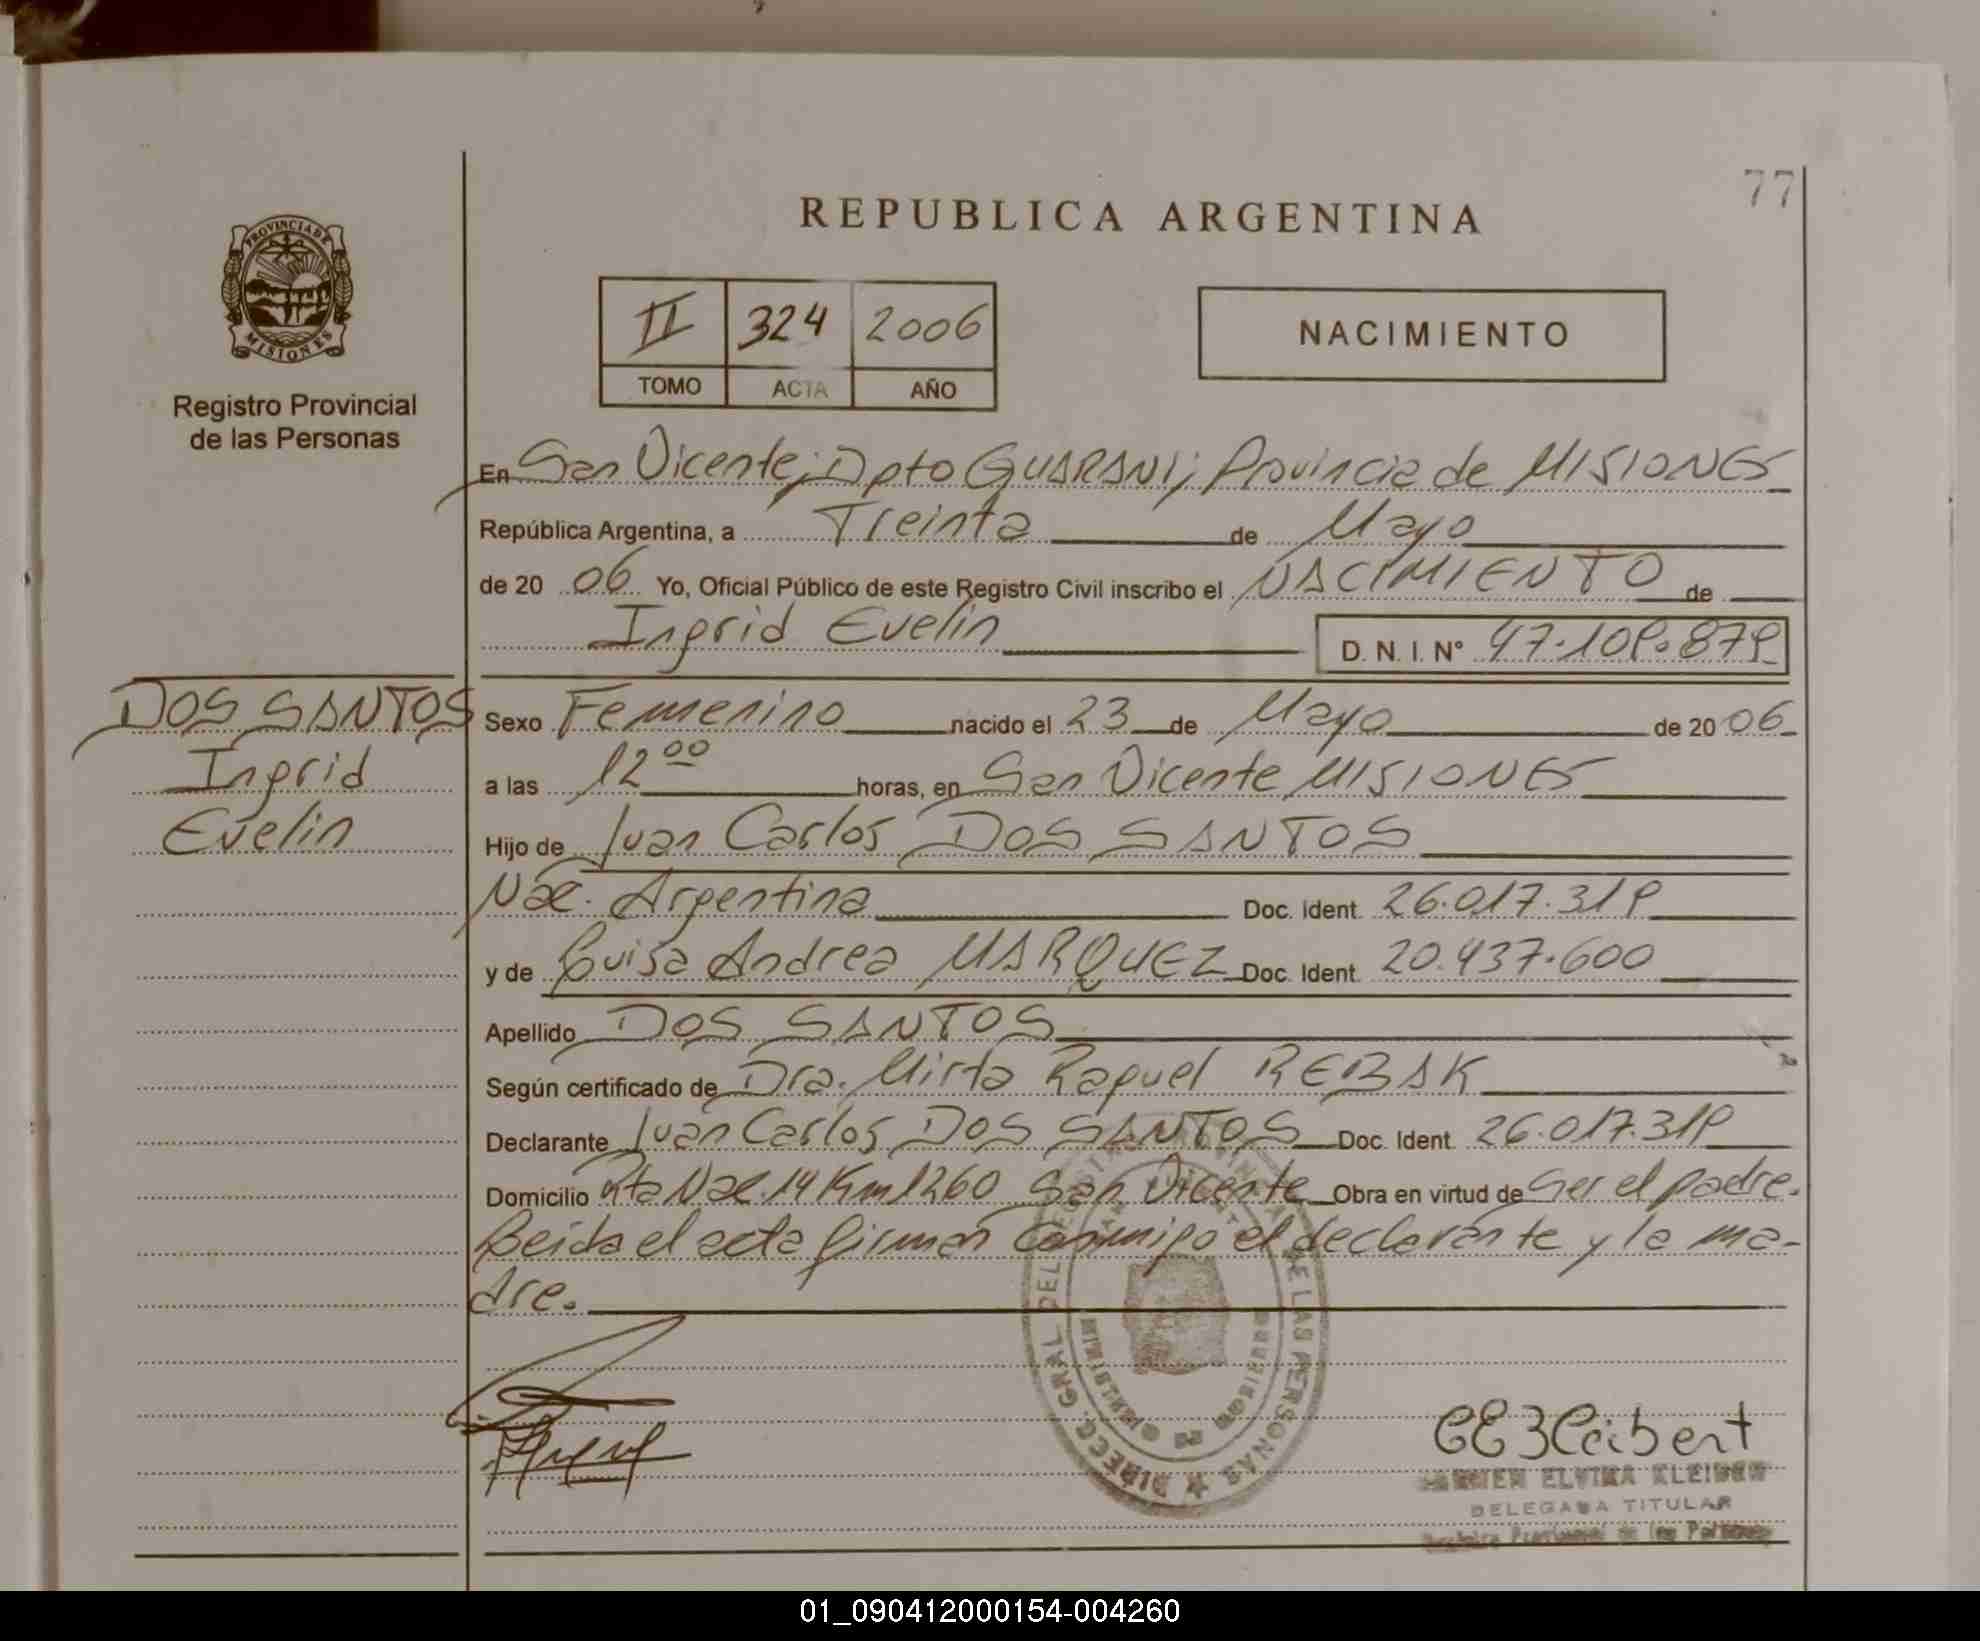 77
REPUBLICA ARGENTINA
PROVINCIA DE
MISIONES
Registro Provincial
de las Personas
II 324 2006
TOMO ACTA AÑO
NACIMIENTO
En San Vicente; Dpto GUARANI; Provincia de MISIONES
República Argentina, a Treinta de Mayo
de 20 06 Yo, Oficial Público de este Registro Civil inscribo el NACIMIENTO de
Ingrid Evelin D. N. I. N° 47.109.879
DOS SANTOS
Ingrid
Evelin
Sexo Femenino nacido el 23 de Mayo de 20 06
a las 12 00 horas, en San Vicente MISIONES
Hijo de Juan Carlos DOS SANTOS
Nac. Argentina Doc. Ident. 26.017.319
y de Luisa Andrea MARQUEZ Doc. Ident. 20.437.600
Apellido DOS SANTOS
Según certificado de Dra. Mirta Raquel REBAK
Declarante Juan Carlos DOS SANTOS Doc. Ident 26.017.319
Domicilio Rta Nac. 14 Km 1260 San Vicente Obra en virtud de Ser el padre.
Leida el acta firman conmigo el declarante y la ma-
dre.
DIREC. GRAL DEL DE LAS PERSONAS
ELVIRA
DELEGADA TITULAR
Provincial de las Personas
01_090412000154-004260